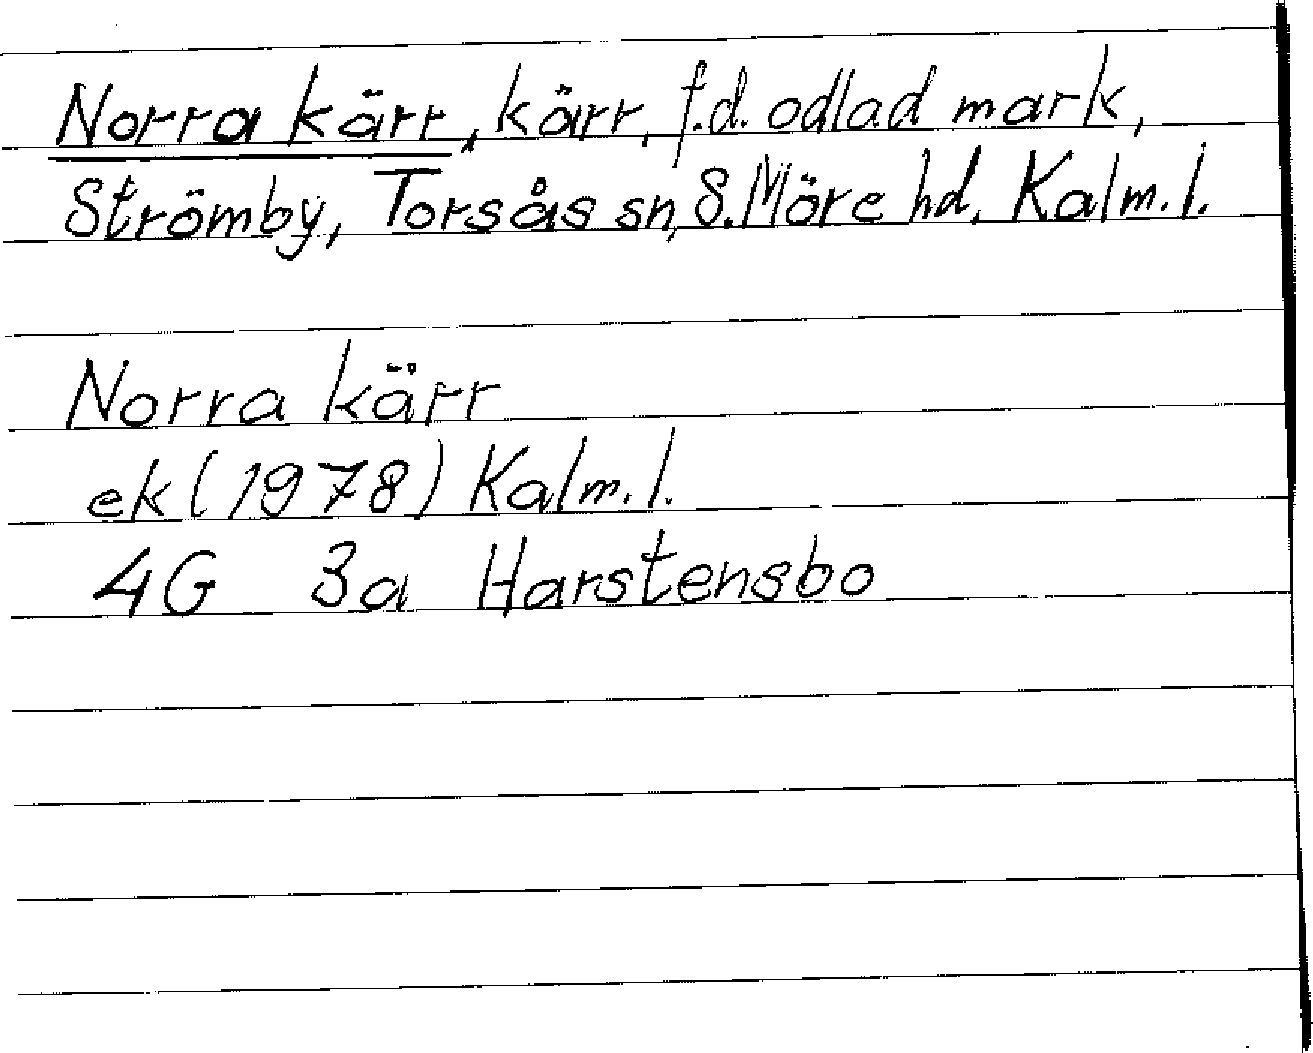 Norra kärr, kärr, f.d. odlad mark,
Strömby, Torsås sn, S. Möre hd, Kalm. l.
Norra kärr
ek (1978) Kalm. l.
4G 3a Harstensbo